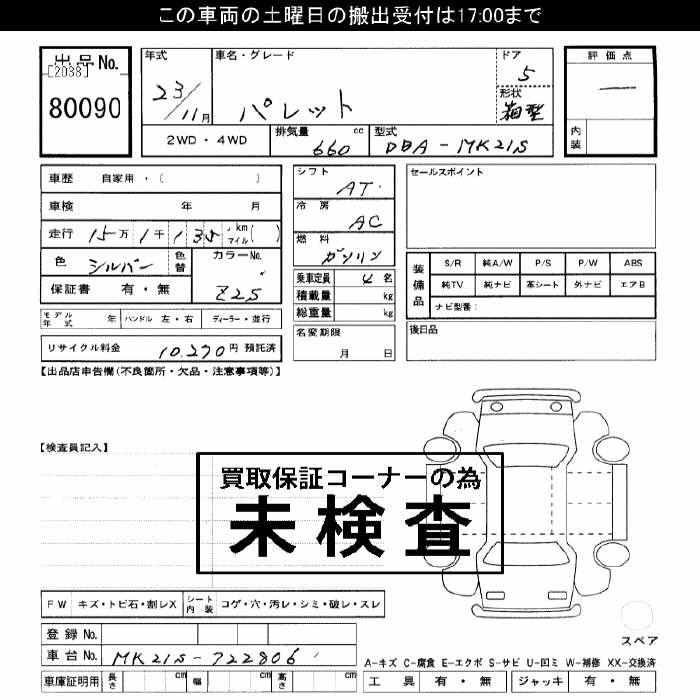 この車両の土曜日の搬出受付は17:00まで
出品No.
[2038]
80090
年式 車名・グレード ドア
23/11月 パレット 5
形状 箱型
評価点
―
内装
2WD・4WD 排気量 660 cc 型式 DBA-MK21S
車歴 自家用・( )
車検 年 月
走行 15万1千135 km マイル( )
色 シルバー 色替 カラーNo. Z2S
保証書 有・無
シフト AT
冷房 AC
燃料 ガソリン
乗車定員 4名
積載量 kg
総重量 kg
名変期限
月 日
セールスポイント
装備品 S/R 純A/W P/S P/W ABS
純TV 純ナビ 革シート 外ナビ エアB
ナビ型番:
後日品
モデル年式 年 ハンドル 左・右 ディーラー・並行
リサイクル料金 10,270円 預託済
【出品店申告欄(不良箇所・欠品・注意事項等)】
【検査員記入】
買取保証コーナーの為
未検査
FW キズ・トビ石・割レX シート内装 コゲ・穴・汚レ・シミ・破レ・スレ
登録No.
車台No. MK21S-722806
車庫証明用 長さ cm 幅 cm 高さ cm
スペア
A-キズ C-腐食 E-エクボ S-サビ U-凹ミ W-補修 XX-交換済
工具 有・無 ジャッキ 有・無